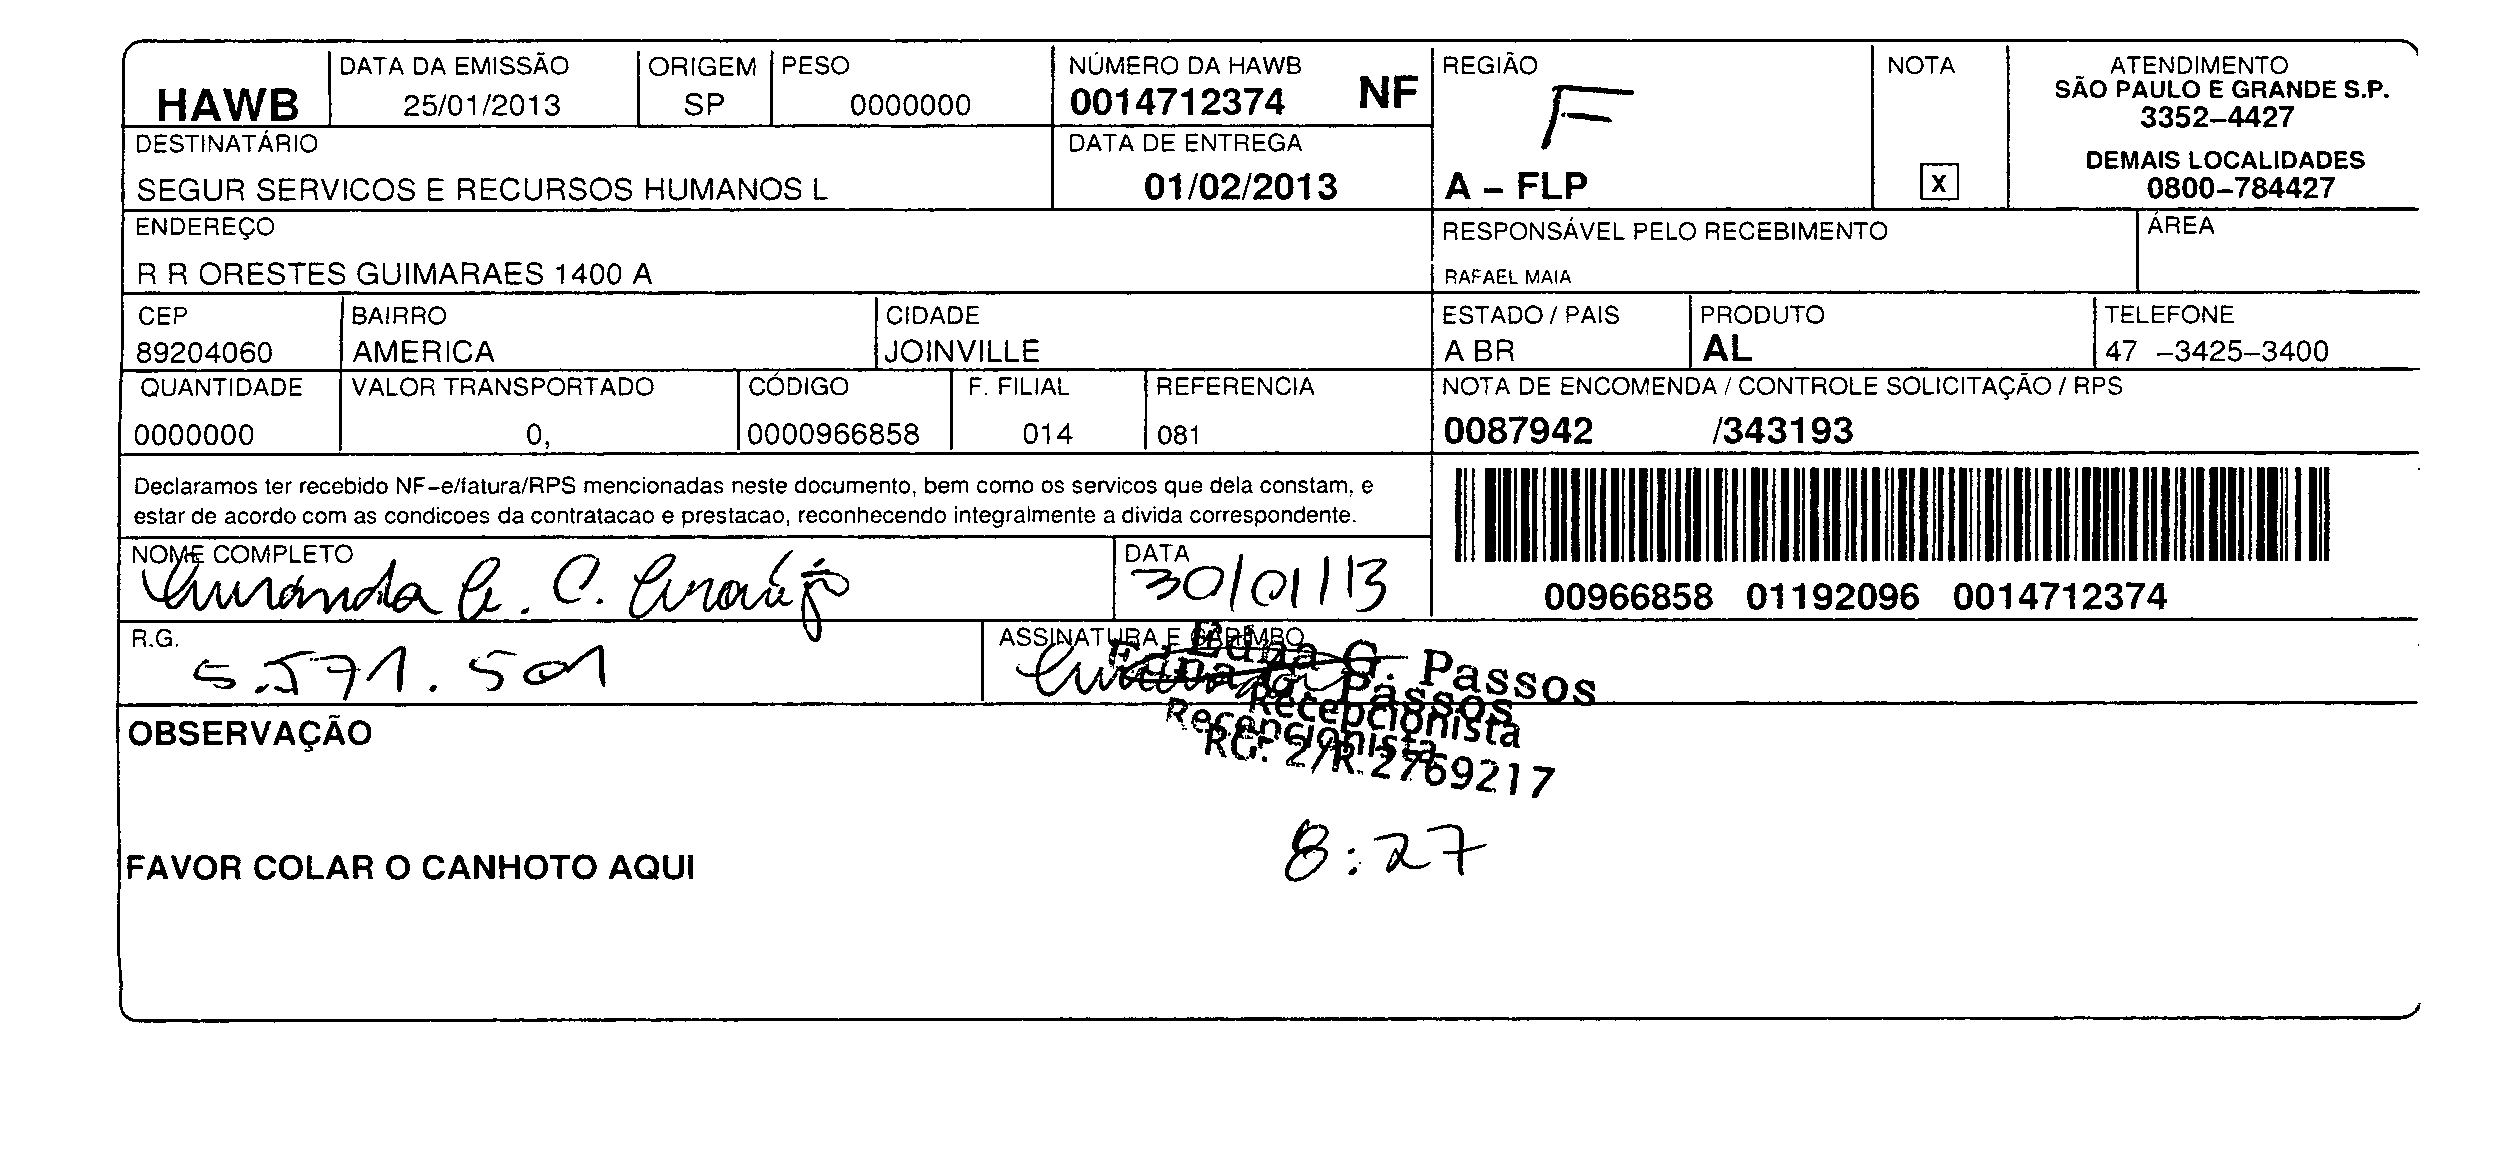 HAWB
DATA DA EMISSÃO
25/01/2013
ORIGEM
SP
PESO
0000000
NÚMERO DA HAWB
0014712374 NF
REGIÃO
F
A – FLP
NOTA
X
ATENDIMENTO
SÃO PAULO E GRANDE S.P.
3352–4427
DEMAIS LOCALIDADES
0800–784427
DESTINATÁRIO
SEGUR SERVICOS E RECURSOS HUMANOS L
DATA DE ENTREGA
01/02/2013
ENDEREÇO
R R ORESTES GUIMARAES 1400 A
RESPONSÁVEL PELO RECEBIMENTO
RAFAEL MAIA
ÁREA
CEP
89204060
BAIRRO
AMERICA
CIDADE
JOINVILLE
ESTADO / PAIS
A BR
PRODUTO
AL
TELEFONE
47 –3425–3400
QUANTIDADE
0000000
VALOR TRANSPORTADO
0,
CÓDIGO
0000966858
F. FILIAL
014
REFERENCIA
081
NOTA DE ENCOMENDA / CONTROLE SOLICITAÇÃO / RPS
0087942 /343193
Declaramos ter recebido NF–e/fatura/RPS mencionadas neste documento, bem como os servicos que dela constam, e
estar de acordo com as condicoes da contratacao e prestacao, reconhecendo integralmente a divida correspondente.
00966858 01192096 0014712374
NOME COMPLETO
C. Araújo
DATA
30/01/13
R.G.
5.571.501
ASSINATURA E CARIMBO
Edna G. Passos
Passos
Recepcionista
Recepcionista
RG: 2/R 2769217
OBSERVAÇÃO
8:27
FAVOR COLAR O CANHOTO AQUI